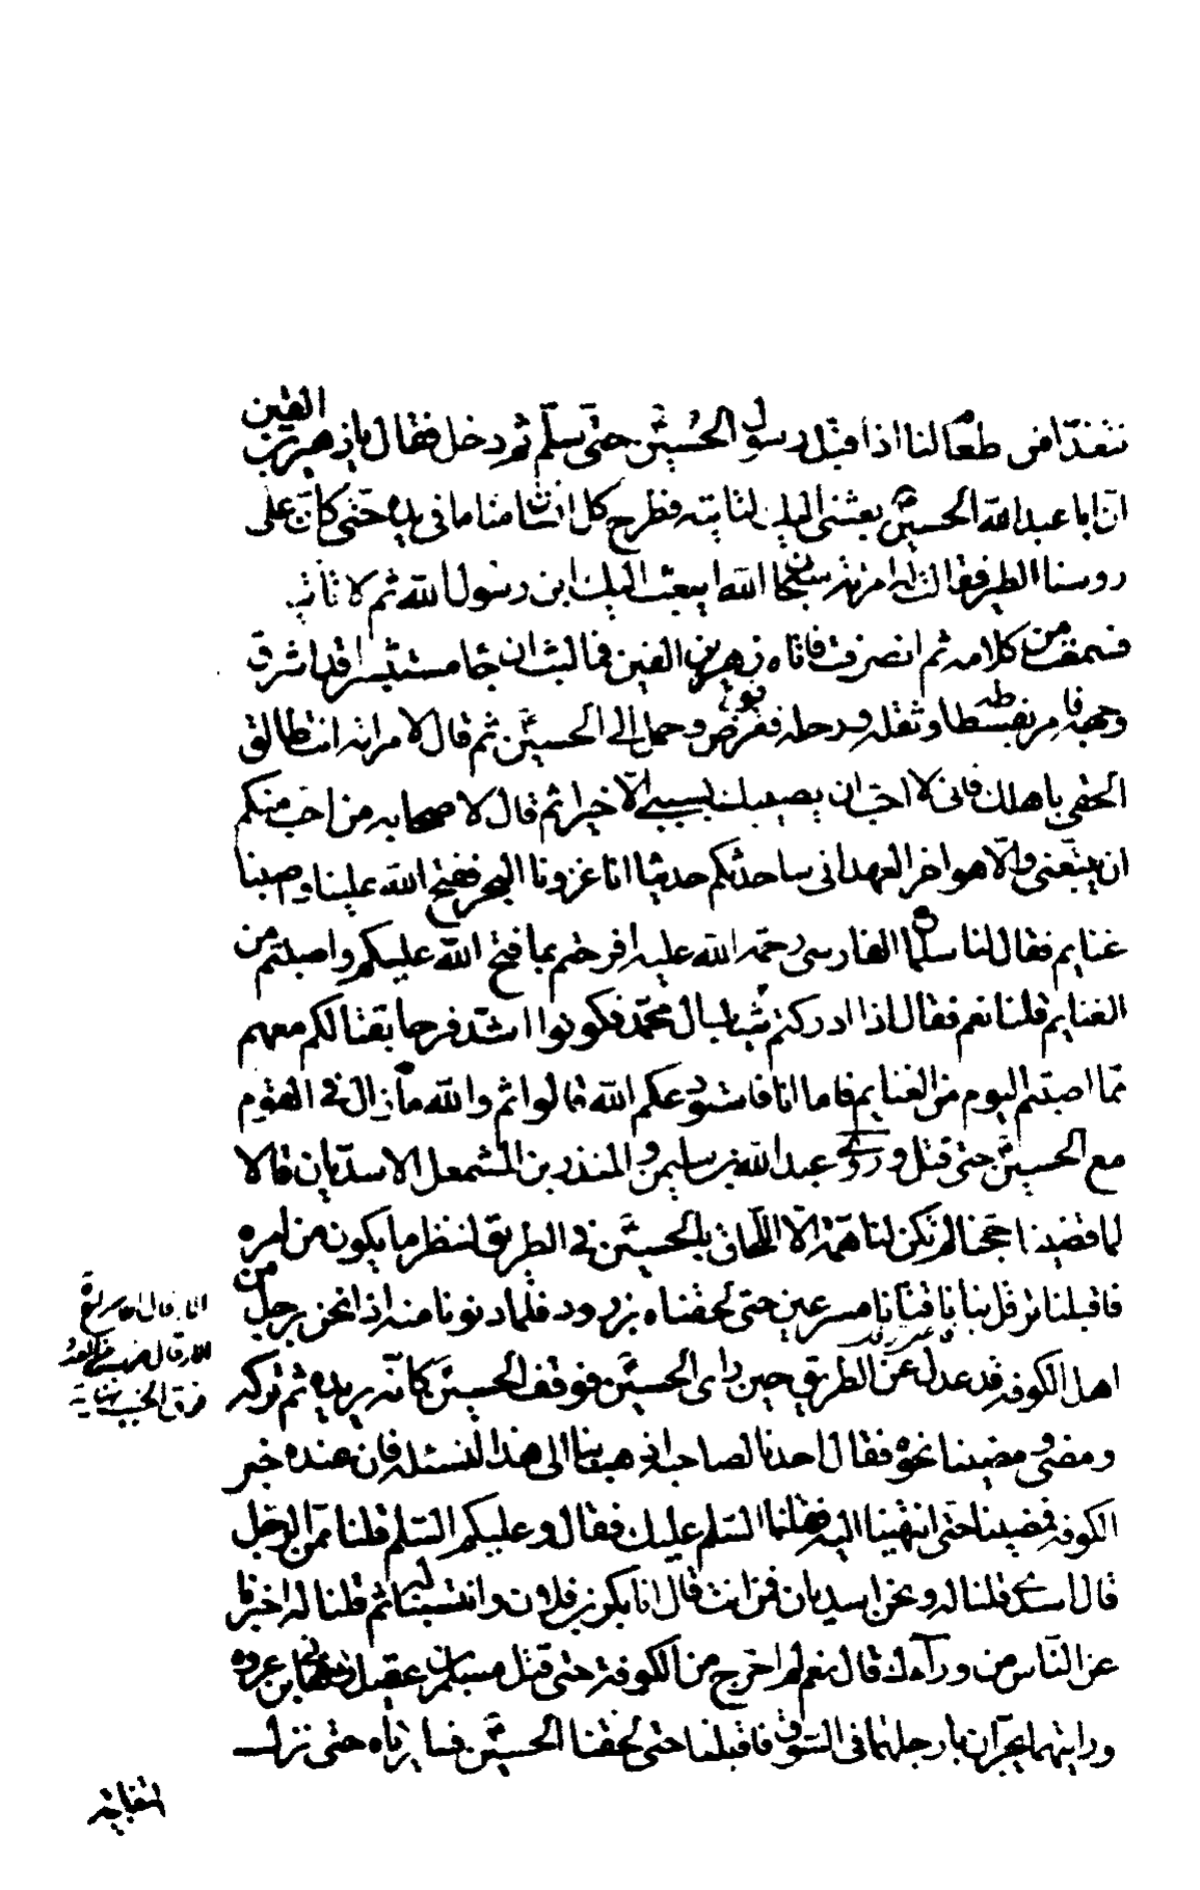 نتغذّا من طعام لنا اذا قبل رسول الحسين حتى سلّم ثم دخل فقال يا زهير بن القين
انّ ابا عبد الله الحسين بعثنى اليك لتاتيه فطرح كل انسان منا ما فى يده حتى كانّ على
روسنا الطير فقالت له امراته سبحان الله ايبعث اليك ابن رسول الله ثم لا تأتيه
فسمعت من كلامه ثم انصرفت فاتاه زهير بن القين فما لبث ان جا مستبشرا قد اشرق
وجهه فامر بفسطاطه وثقله ورحله فقوض وحمل الى الحسين ثم قال لامراته انت طالق
الحقى باهلك فانى لا احب ان يصيبك بسببى الّا خيرا ثم قال لاصحابه من احب منكم
ان يتبعنى والّا هو اخر العهد انى ساحدثكم حديثا انا غزونا البحر ففتح الله علينا واصبنا
غنايم فقال لنا سلمان الفارسى رحمه الله عليه افرحتم بما فتح الله عليكم واصبتم من
الغنايم قلنا نعم فقال اذا ادركتم شباب ال محمّد فكونوا اشدّ فرحا بقتالكم معهم
ممّا اصبتم اليوم من الغنايم فاما انا فاستودعكم الله قالوا ثم والله ما زال فى القوم
مع الحسين حتى قتل وروى عبد الله بن سليمن والمنذر بن المشمعل الاسديّان قالا
لما قضينا حجنا لم تكن لنا همّة الّا اللحاق بالحسين فى الطريق لننظر ما يكون من امره
فاقبلنا ترقل بنا ناقتانا مسرعين حتى لحقناه بزرود فلما دنونا منه اذا نحن برجل من
اهل الكوفه قد عدل عن الطريق حين راى الحسين فوقف الحسين كانّه يريده ثم تركه
ومضى ومضينا نحوه فقال احدنا لصاحبه اذهب بنا الى هذا لنسئله فان عنده خبر
الكوفه فمضينا حتى انتهينا اليه فقلنا السّلم عليك فقال وعليكم السّلم قلنا ممّن الرّجل
قال اسدى قلنا له ونحن اسديان فمن انت قال انا بكر بن فلان وانتسبنا له ثم قلنا له اخبرنا
عن النّاس من وراءك قال نعم لم اخرج من الكوفة حتى قتل مسلم بن عقيل وهانى بن عروه
ورايتهما يجرّان بارجلهما فى السّوق فاقبلنا حتى لحقنا الحسين فسايرناه حتى نزل